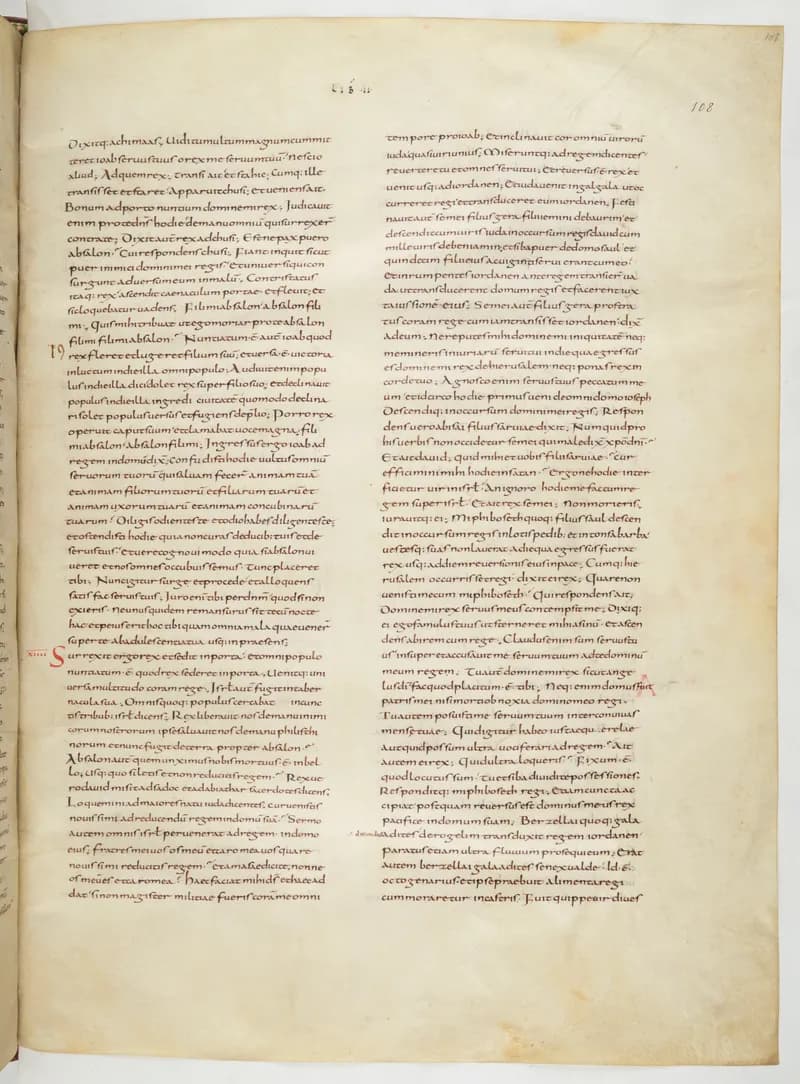 Lib II
108
Dixitq: achimaas, Uidi tumultum magnum cum mit
teret ioab seruus tuus o rex me seruum tuū. Nescio
aliud; Ad quem rex; transi ait et sta hic; Cumq: ille
transisset et staret. Apparuit chusi; et ueniens ait.
Bonum adporto nuntium domine mi rex; Iudicauit
enim pro te dn̄s hodie de manu omniū qui surrexer̄
contra te; Dixit aut̄ rex ad chusi; Est ne pax puero
absalon. Cui respondens chusi; Fiant inquit sicut
puer inimici domini mei regis. et uniuersi qui con
surgunt aduersum eum in malū. Contristatus
itaq: rex ascendit caenaculum portae et fleuit; et
sic loquebatur uadens; Fili mi absalon absalon fili
mi; Quis mihi tribuat ut ego moriar pro te absalon
fili mi fili mi absalon. Nuntiatum ē aut̄ ioab quod
19
rex fleret et lugeret filium suū; et uersa ē uictoria
in luctum in die illa omni populo; Audiuit enim popu
lus in die illa dici dolet rex super filio suo; et declinauit
populus in die illa ingredi ciuitatē quomodo declina
ri solet populus uersus et fugiens de p̄lio; Porro rex
operuit caput suum et clamabat uoce magna; fili
mi absalon absalon fili mi; Ingressus ergo ioab ad
regem in domū dix̄; Confudisti hodie uultus omniū
seruorum tuorū qui saluam fecer̄ animam tuā
et animam filiorum tuorū et filiarum tuarū et
animam uxorum tuarū et animam concubinarū
tuarum. Diligis odientes te et odio habes diligentes te;
et ostendisti hodie quia non curas de ducib: tuis et de
seruis tuis. Et uere cognoui modo quia si absalon ui
ueret et nos omnes occubuissemus tunc placeret
tibi. Nunc igitur surge et procede et alloquens
satisfac seruis tuis; Iuro enī tibi per dnm̄ quod si non
exieris. ne unus quidem remansurus sit tecū nocte
hac et peius erit hoc tibi quam omnia mala quae uener̄
super te ab adulescentia tua usq: in praesens;
XIIII Surrexit ergo rex et sedit in porta. et omni populo
nuntiatum ē quod rex sederet in porta. Uenitq: uni
uersa multitudo coram rege; Isrl̄ aut̄ fugit in taber
nacula sua; Omnisq: populus certabat in cunc
tis tribub: isrl̄ dicens; Rex liberauit nos de manu inimi
corum nostrorum ipse saluauit nos de manu philisthi
norum et nunc fugit de terra propter absalon.
Absalon aut̄ quem unximus nobis mortuus ē in bel
lo; Usq: quo siletis et non reducitis regem. Rex ue
ro dauid misit ad sadoc et ad abiathar sacerdotes dicens;
Loquemini ad maiores natu iuda dicentes. cur uenitis
nouissimi ad reducendū regem in domū suā. Sermo
autem omnis isrl̄ peruenerat ad regem in domo
eius; fratres mei uos os meū et caro mea uos quare
nouissimi reducitis regem. et amasae dicite; nonne
os meū es et caro mea. Haec faciat mihi ds̄ et haec ad
dat si non magister militiae fueris coram me omni
tempore pro ioab; Et inclinauit cor omniū uirorū
iuda quasi uiri unius; Miseruntq: ad regem dicentes
reuertere tu et omnes serui tui; Et reuersus ē rex et
uenit usq: ad iordanen; Et iuda uenit in galgala ut oc
curreret regi et transduceret eum iordanen; Festi
nauit aut̄ semei filius gera filii iemini de baurim et
descendit cum uiris iuda in occursum regis dauid cum
mille uiris de beniamin; et siba puer de domo saul et
quindecim filii eius ac uiginti serui erant cum eo.
Et inrumpentes iordanen ante regem transier̄ ua
da. ut transducerent domum regis et facerent iux
ta iussionē eius; Semei aut̄ filius gera prostra
tus coram rege cum iam transisset iordanen dix̄
ad eum; Ne reputes mihi domine mi iniquitatē neq:
memineris iniuriarū serui tui in die qua egressus
es domine mi rex de hierusalem neq: ponas rex in
corde tuo; Agnosco enim seruus tuus peccatum me
um et idcirco hodie primus ueni de omni domo ioseph
Descendiq: in occursum domini mei regis; Respon
dens uero abisai filius saruiae dixit; Num quid pro
his uerbis non occidetur semei qui maledix̄ xpō dnī.
Et ait dauid; Quid mihi et uobis filii saruiae. cur
efficimini mihi hodie in satan. Ergone hodie inter
ficietur uir in isrl̄. An ignoro hodie me factum re
gem super isrl̄. Et ait rex semei; Non morieris;
iurauitq: ei; Miphiboseth quoq: filius saul descen
dit in occursum regis inlotis pedib: et intonsa barba
uestesq: suas non lauerat a die qua egressus fuerat
rex usq: ad diem reuersionis eius in pace; Cumq: hie
rusalem occurrisset regi. dixit ei rex; Quare non
uenisti mecum miphiboseth. Qui respondens ait;
Domine mi rex seruus meus contempsit me; Dixiq:
ei ego famulus tuus ut sterneret mihi asinū. et ascen
dens abirem cum rege; Claudus enim sum seruus tu
us. insuper et accusauit me seruum tuum ad te dominū
meum regem; Tu aut̄ domine mi rex sicut ange
lus dī fac quod placitum ē tibi; Neq: enim domus fuit
patris mei nisi morti obnoxia domino meo regi.
Tu autem posuisti me seruum tuum inter conuiuas
mensae tuae; Quid igitur habeo iustae querelae
Aut quid possum ultra uociferari ad regem. Ait
autem ei rex; Quid ultra loqueris. Fixum ē
quod locutus sum. Tu et siba diuidite possessiones.
Responditq: miphiboseth regi; Etiam cuncta ac
cipiat postquam reuersus est dominus meus rex
pacifice in domum suam; Berzellai quoq: gala
adites de rogelim transduxit regem iordanen
paratus etiam ultra fluuium prosequi eum; Erat
autem berzellai galaadites senex ualde. Id. ē.
octogenarius. et ipse praebuit alimenta regi
cum moraretur in castris. Fuit quippe uir diues